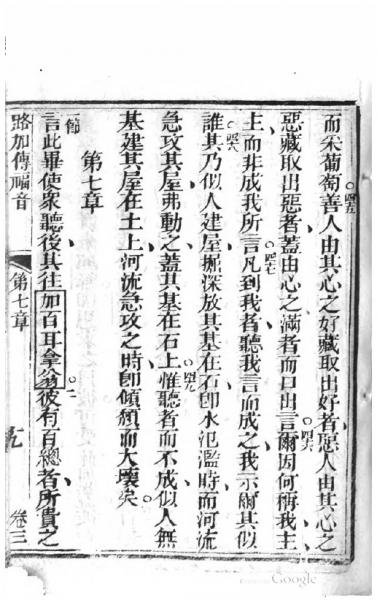 而采葡萄○四五善人由其心之好藏取出好者惡人由其心之
惡藏取出惡者蓋由心之滿者而口出言○四六爾因何稱我主
主而非成我所言○四七凡到我者聽我言而成之我示爾其似
誰○四八其乃似人建屋掘深放其基在石卽水氾濫時而河流
急攻其屋弗動之蓋其基在石上○四九惟聽者而不成似人無
基建其屋在土上河流急攻之時卽傾頹而大壞矣○
第七章
一節言此畢使衆聽後其往加百耳拿翁○二彼有百總者所貴之
路加傳福音 第七章 九 卷三
Google